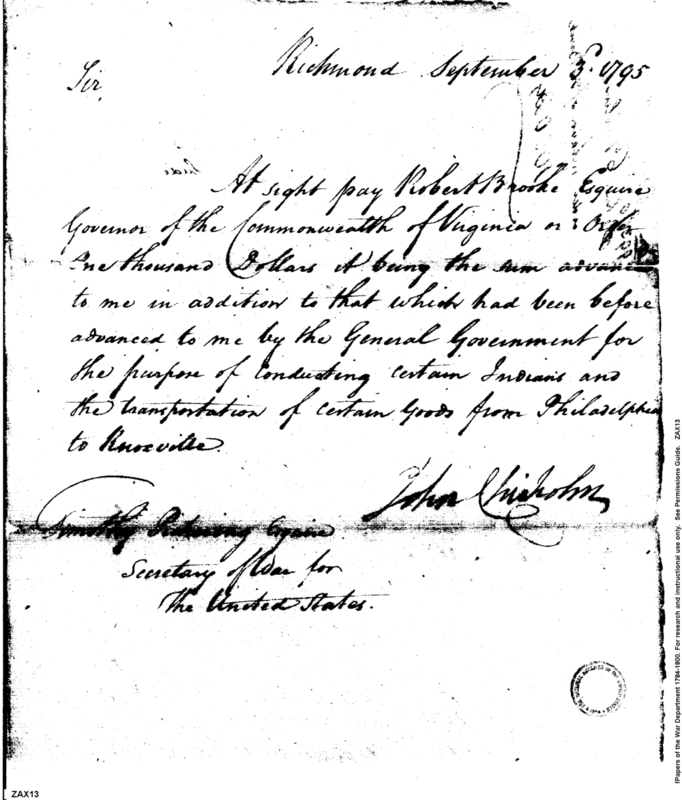 Richmond September 3d. 1795
Sir
At sight pay Robert Brooke Esquire
Governor of the Commonwealth of Virginia or Order
One thousand Dollars it being the sum advanc
to me in addition to that which had been before
advanced to me by the General Government for
the purpose of Conducting Certain Indians and
the transportation of Certain Goods from Philadelphia
to Knoxville.
John Chisholm
Timothy Pickering Esquire
Secretary of War for
The United States.
Papers of the War Department 1784-1800. For research and instructional use only. See Permissions Guide. ZAX13
ZAX13